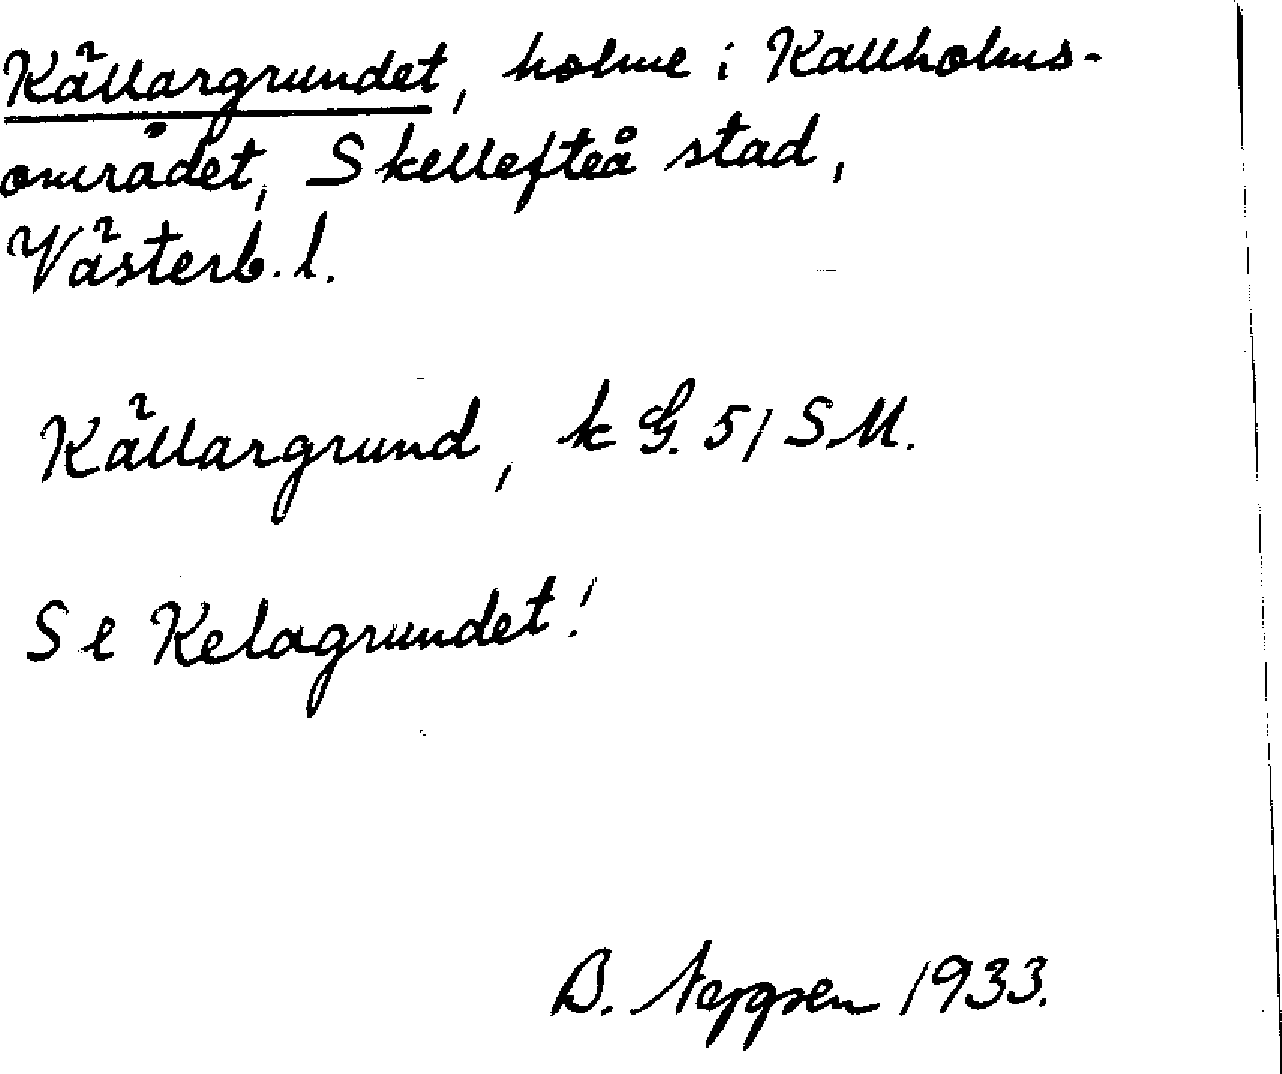 Källargrundet, holme i Kallholms-
området, Skellefteå stad,
Västerb. l.
Källargrund, k G. 51 SM.
Se Kelagrundet!
B. 1933.